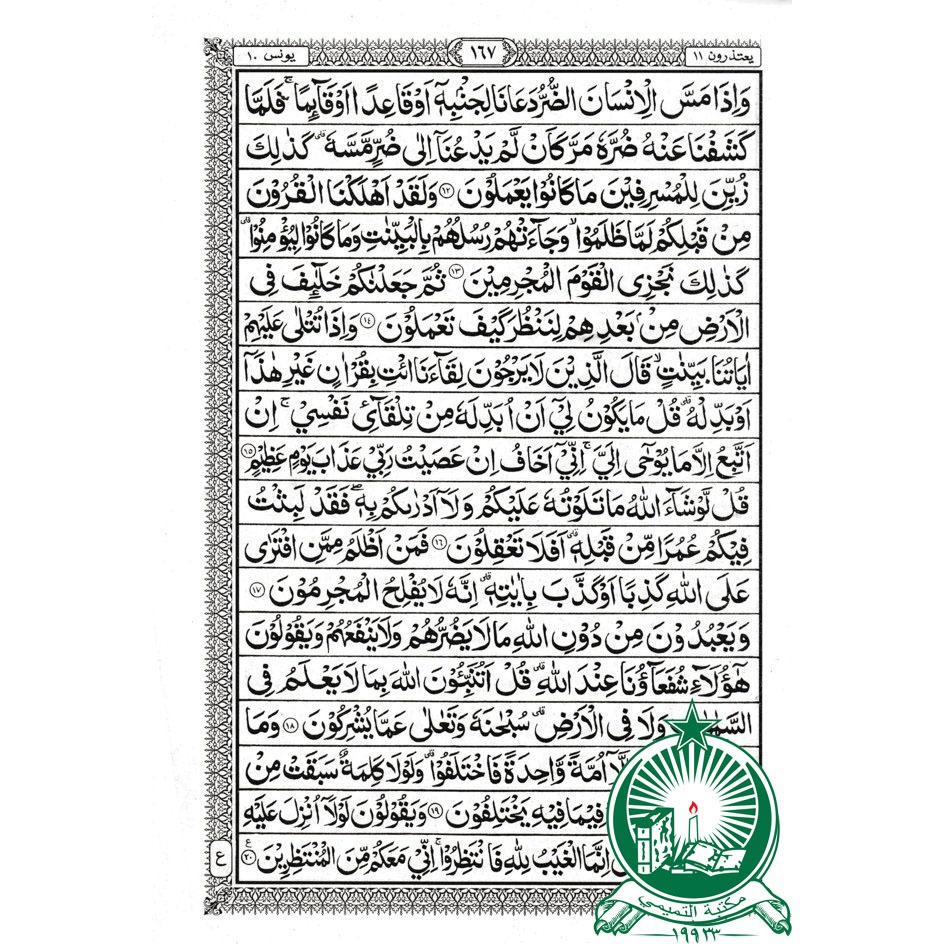 يعتذرون ١١
١٦٧
يونس ١٠
وَاِذَا مَسَّ الْاِنْسَانَ الضُّرُّ دَعَانَا لِجَنْۢبِهٖۤ اَوْ قَاعِدًا اَوْ قَآئِمًا ۚ فَلَمَّا
كَشَفْنَا عَنْهُ ضُرَّهٗ مَرَّ كَاَنْ لَّمْ يَدْعُنَاۤ اِلٰى ضُرٍّ مَّسَّهٗ ؕ كَذٰلِكَ
زُيِّنَ لِلْمُسْرِفِيْنَ مَا كَانُوْا يَعْمَلُوْنَ ١٢ وَلَقَدْ اَهْلَكْنَا الْقُرُوْنَ
مِنْ قَبْلِكُمْ لَمَّا ظَلَمُوْا ۙ وَجَآءَتْهُمْ رُسُلُهُمْ بِالْبَيِّنٰتِ وَمَا كَانُوْا لِيُؤْمِنُوْا ؕ
كَذٰلِكَ نَجْزِى الْقَوْمَ الْمُجْرِمِيْنَ ١٣ ثُمَّ جَعَلْنٰكُمْ خَلٰٓئِفَ فِى
الْاَرْضِ مِنْۢ بَعْدِهِمْ لِنَنْظُرَ كَيْفَ تَعْمَلُوْنَ ١٤ وَاِذَا تُتْلٰى عَلَيْهِمْ
اٰيَاتُنَا بَيِّنٰتٍ ۙ قَالَ الَّذِيْنَ لَا يَرْجُوْنَ لِقَآءَنَا ائْتِ بِقُرْاٰنٍ غَيْرِ هٰذَاۤ
اَوْ بَدِّلْهُ ؕ قُلْ مَا يَكُوْنُ لِيْۤ اَنْ اُبَدِّلَهٗ مِنْ تِلْقَآئِ نَفْسِيْ ۚ اِنْ
اَتَّبِعُ اِلَّا مَا يُوْحٰى اِلَيَّ ۚ اِنِّيْۤ اَخَافُ اِنْ عَصَيْتُ رَبِّيْ عَذَابَ يَوْمٍ عَظِيْمٍ ١٥
قُلْ لَّوْ شَآءَ اللّٰهُ مَا تَلَوْتُهٗ عَلَيْكُمْ وَلَاۤ اَدْرٰىكُمْ بِهٖ ۖ فَقَدْ لَبِثْتُ
فِيْكُمْ عُمُرًا مِّنْ قَبْلِهٖ ؕ اَفَلَا تَعْقِلُوْنَ ١٦ فَمَنْ اَظْلَمُ مِمَّنِ افْتَرٰى
عَلَى اللّٰهِ كَذِبًا اَوْ كَذَّبَ بِاٰيٰتِهٖ ؕ اِنَّهٗ لَا يُفْلِحُ الْمُجْرِمُوْنَ ١٧
وَيَعْبُدُوْنَ مِنْ دُوْنِ اللّٰهِ مَا لَا يَضُرُّهُمْ وَلَا يَنْفَعُهُمْ وَيَقُوْلُوْنَ
هٰٓؤُلَآءِ شُفَعَآؤُنَا عِنْدَ اللّٰهِ ؕ قُلْ اَتُنَبِّئُوْنَ اللّٰهَ بِمَا لَا يَعْلَمُ فِى
وَلَا فِى الْاَرْضِ ؕ سُبْحٰنَهٗ وَتَعٰلٰى عَمَّا يُشْرِكُوْنَ ١٨ وَمَا
اُمَّةً وَّاحِدَةً فَاخْتَلَفُوْا ؕ وَلَوْلَا كَلِمَةٌ سَبَقَتْ مِنْ
فِيْمَا فِيْهِ يَخْتَلِفُوْنَ ١٩ وَيَقُوْلُوْنَ لَوْلَاۤ اُنْزِلَ عَلَيْهِ
اِنَّمَا الْغَيْبُ لِلّٰهِ فَانْتَظِرُوْا ۚ اِنِّيْ مَعَكُمْ مِّنَ الْمُنْتَظِرِيْنَ ٢٠
ع
مكتبة التميمي
١٩٩٣٣